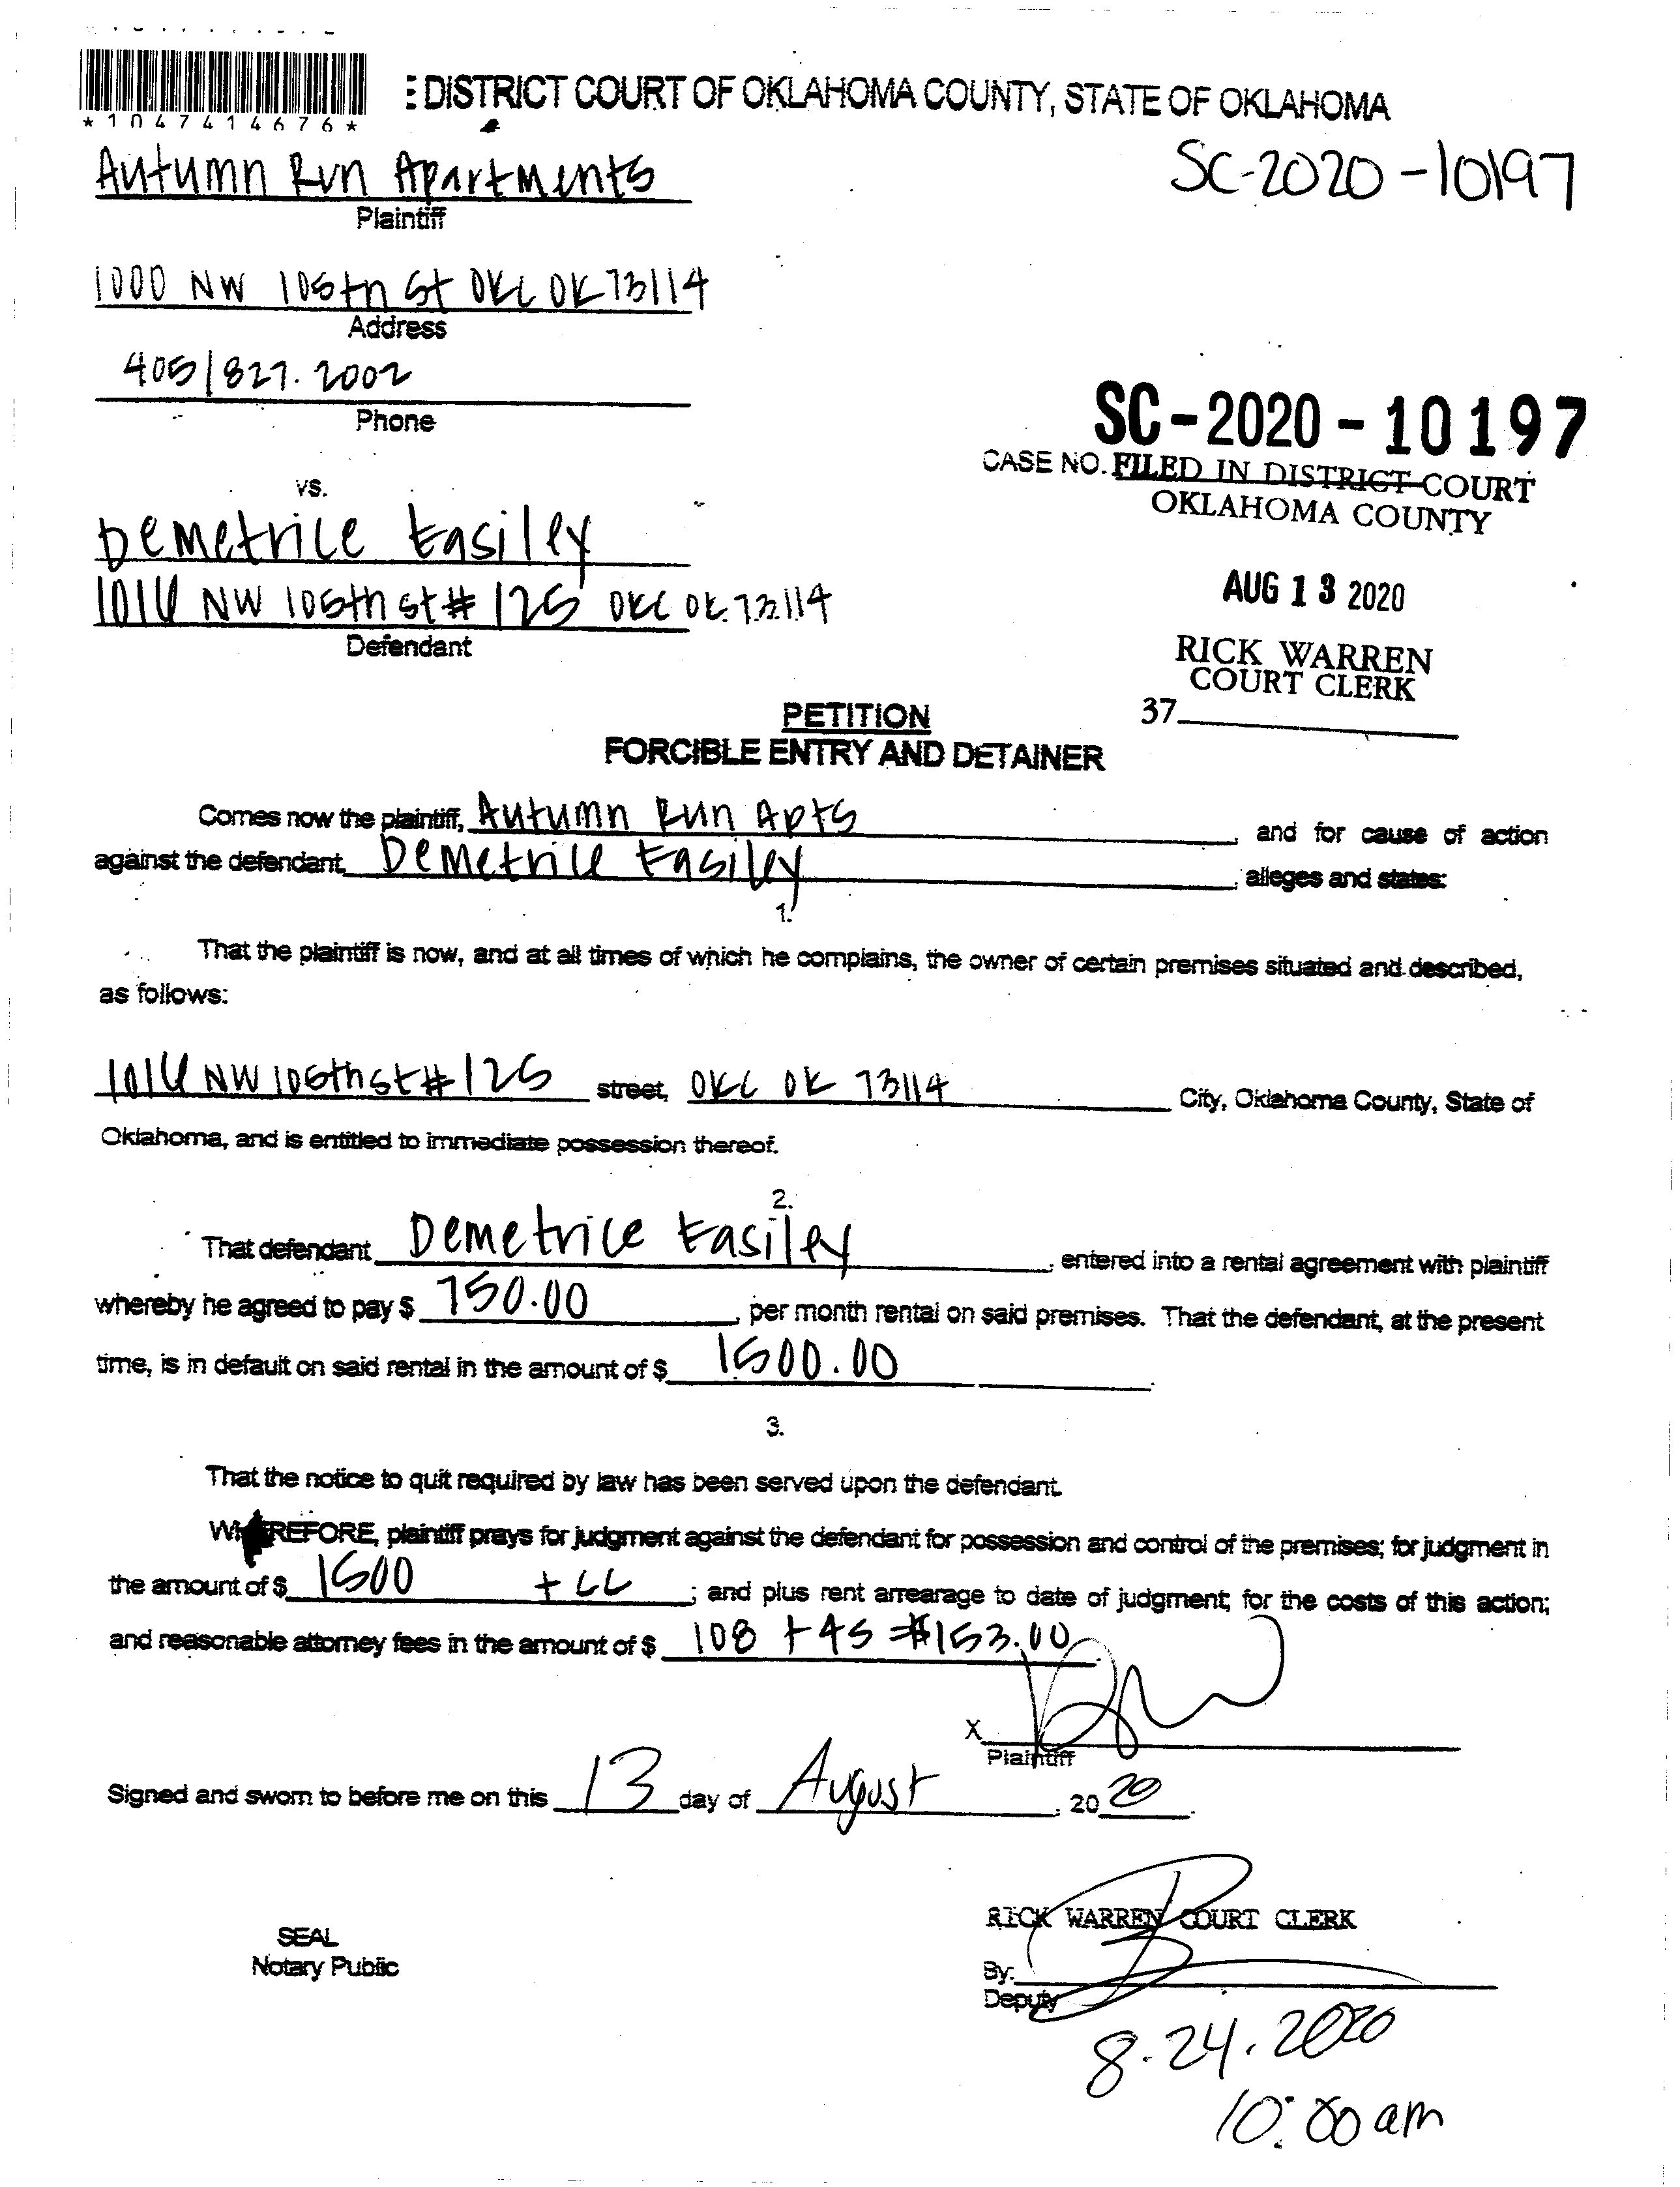 *1047414676*
E DISTRICT COURT OF OKLAHOMA COUNTY, STATE OF OKLAHOMA
Autumn Run Apartments
SC-2020-10197
Plaintiff
1000 NW 105th St OKC OK 73114
Address
405/827.2002
Phone
SC-2020-10197
CASE NO. FILED IN DISTRICT COURT
OKLAHOMA COUNTY
vs.
Demetrice Easiley
1016 NW 105th st # 125 OKC OK 73114
Defendant
AUG 13 2020
RICK WARREN
COURT CLERK
37
PETITION
FORCIBLE ENTRY AND DETAINER
Comes now the plaintiff, Autumn Run Apts, and for cause of action
against the defendant, Demetrice Easiley, alleges and states:
1.
That the plaintiff is now, and at all times of which he complains, the owner of certain premises situated and described,
as follows:
1016 NW 105th st # 125 street, OKC OK 73114 City, Oklahoma County, State of
Oklahoma, and is entitled to immediate possession thereof.
2.
That defendant Demetrice Easiley, entered into a rental agreement with plaintiff
whereby he agreed to pay $ 750.00, per month rental on said premises. That the defendant, at the present
time, is in default on said rental in the amount of $ 1500.00.
3.
That the notice to quit required by law has been served upon the defendant.
WHEREFORE, plaintiff prays for judgment against the defendant for possession and control of the premises; for judgment in
the amount of $ 1500 + CC; and plus rent arrearage to date of judgment; for the costs of this action;
and reasonable attorney fees in the amount of $ 108 + 45 = $153.00.
X
Plaintiff
Signed and sworn to before me on this 13 day of August, 2020.
RICK WARREN COURT CLERK
SEAL
Notary Public
By:
Deputy
8-24.2020
10:00 am